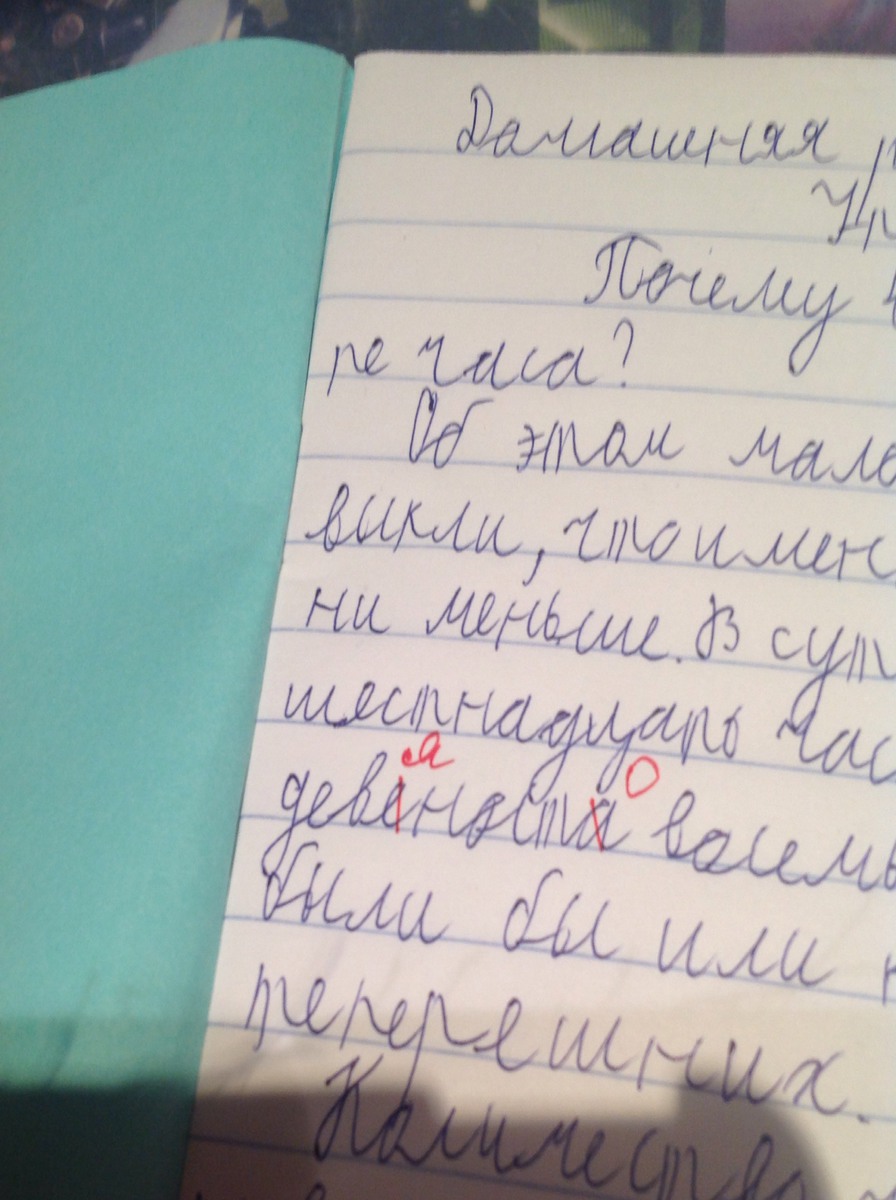 Домашняя
Почему
ре часа?
Об этом мало
выкли, что имен
ни меньше. В сут
шестнадцать час
я о
девеноста восемь
были бы или н
теперешних.
Количество